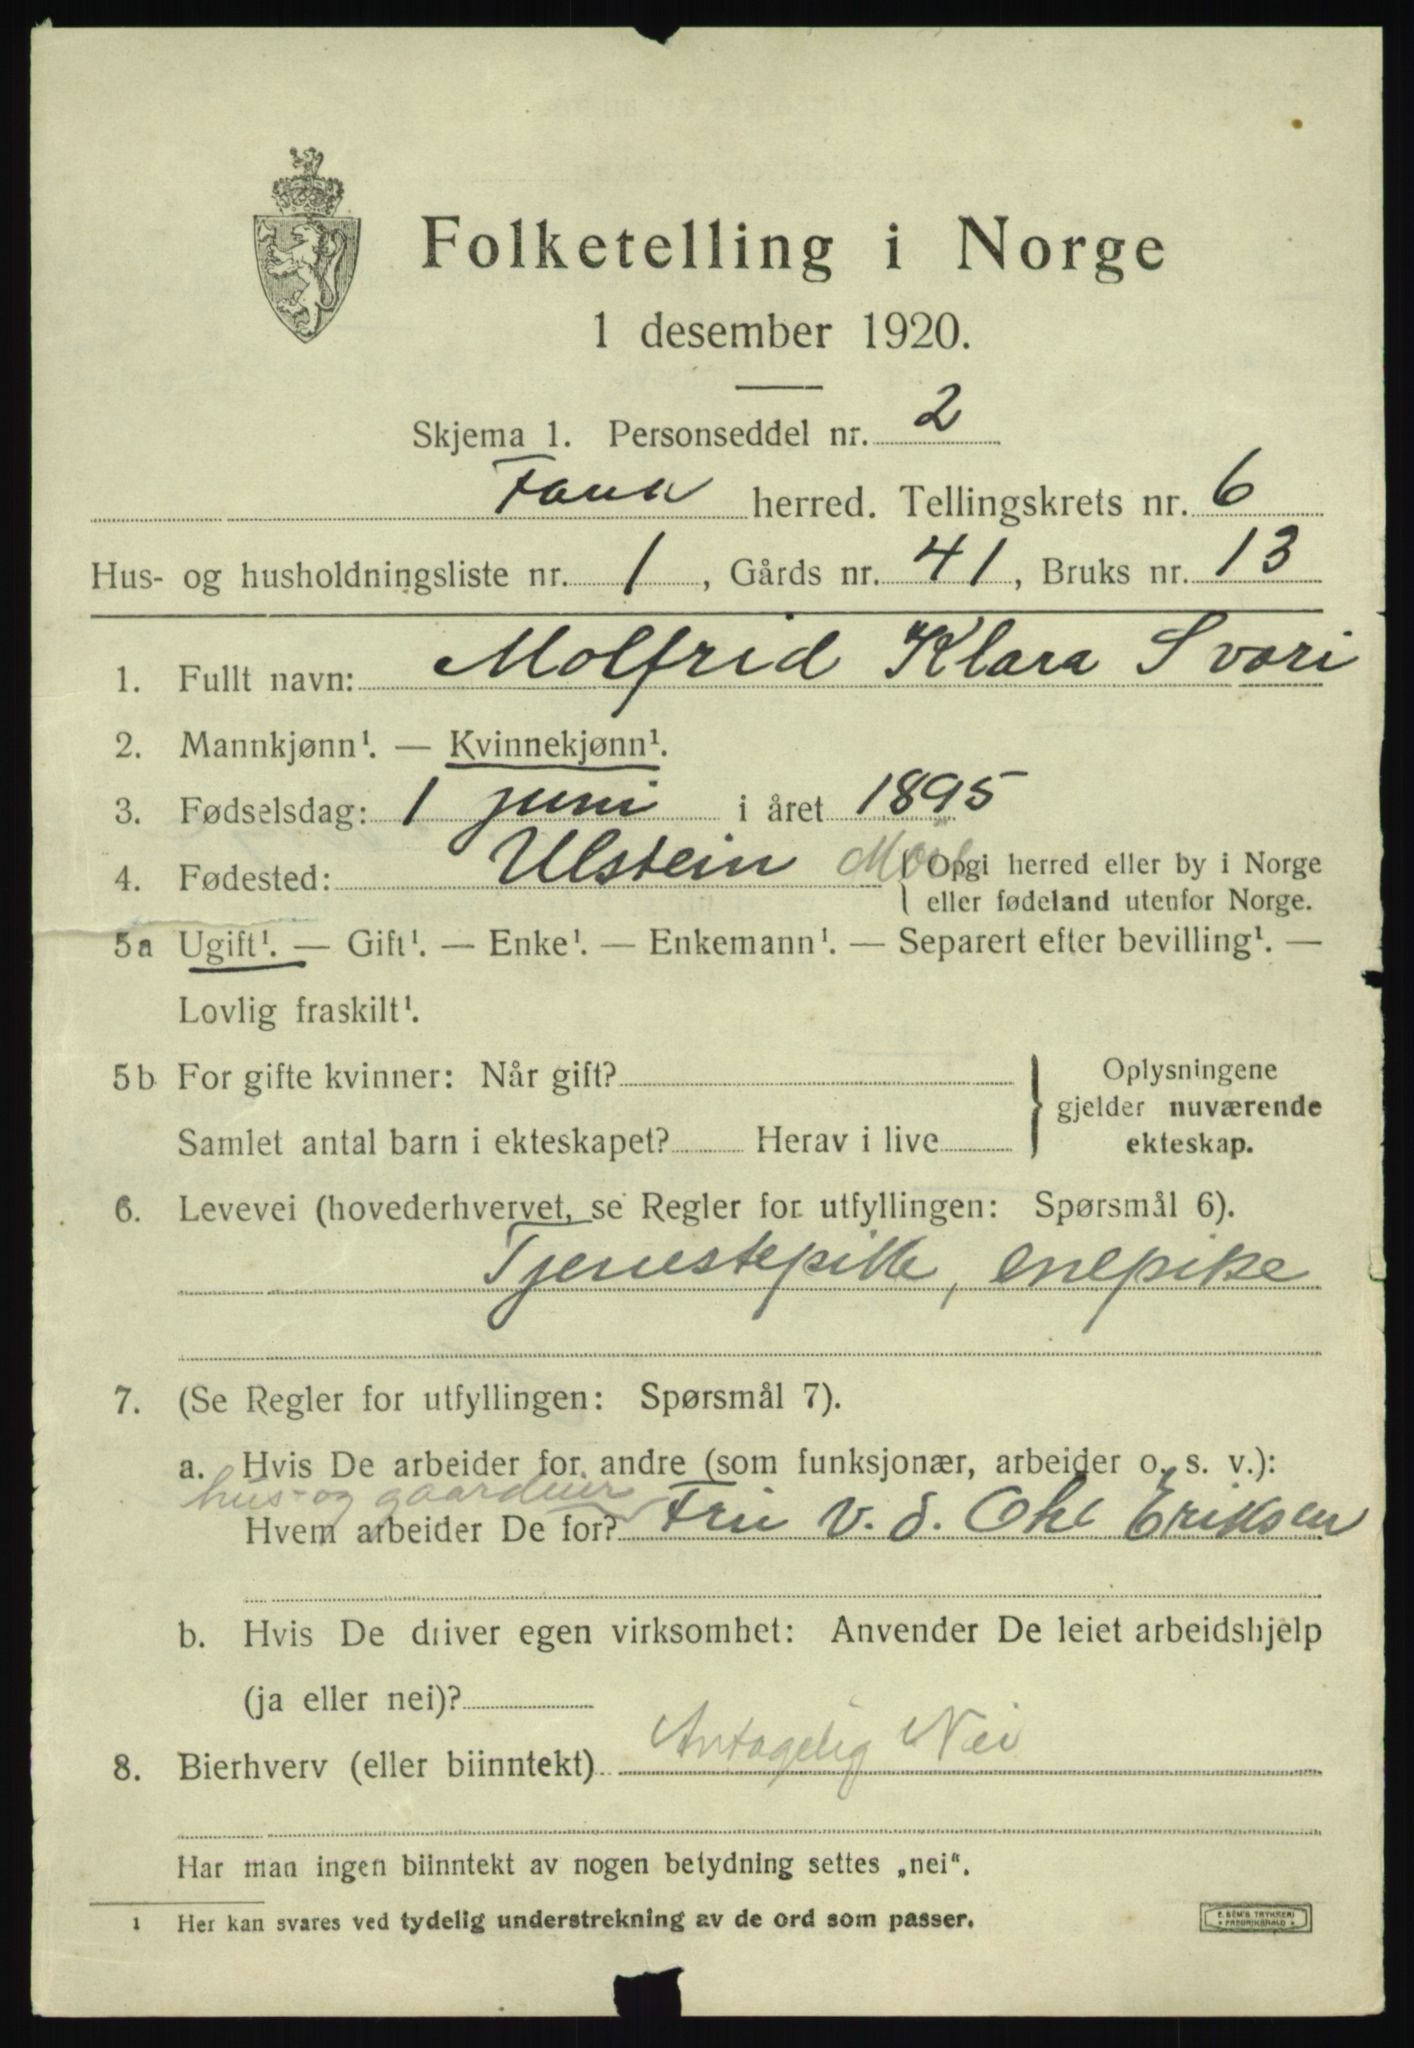 Folketelling i Norge
1 desember 1920.
Skjema 1. Personseddel nr. 2
Fana herred. Tellingskrets nr. 6
Hus- og husholdningsliste nr. 1, Gårds nr. 41, Bruks nr. 13
1. Fullt navn: Molfrid Klara Svori
2. Mannkjønn¹. — Kvinnekjønn¹.
3. Fødselsdag: 1 juni i året 1895
4. Fødested: Ulstein { Opgi herred eller by i Norge
eller fødeland utenfor Norge.
5a Ugift¹. — Gift¹. — Enke¹. — Enkemann¹. — Separert efter bevilling¹. —
Lovlig fraskilt¹.
5b For gifte kvinner: Når gift? } Oplysningene
gjelder nuværende
Samlet antal barn i ekteskapet? Herav i live
ekteskap.
6. Levevei (hovederhvervet, se Regler for utfyllingen: Spørsmål 6).
Tjenestepike, enepike
7. (Se Regler for utfyllingen: Spørsmål 7).
a. Hvis De arbeider for andre (som funksjonær, arbeider o. s. v.):
hus- og gaardeier
Hvem arbeider De for? Fru v. d. Ohe Eriksen
b. Hvis De driver egen virksomhet: Anvender De leiet arbeidshjelp
(ja eller nei)?
8. Bierhverv (eller biinntekt) Antagelig Nei
Har man ingen biinntekt av nogen betydning settes „nei“.
1 Her kan svares ved tydelig understrekning av de ord som passer.
E. SEM'S TRYKKERI
FREDRIKSHALD